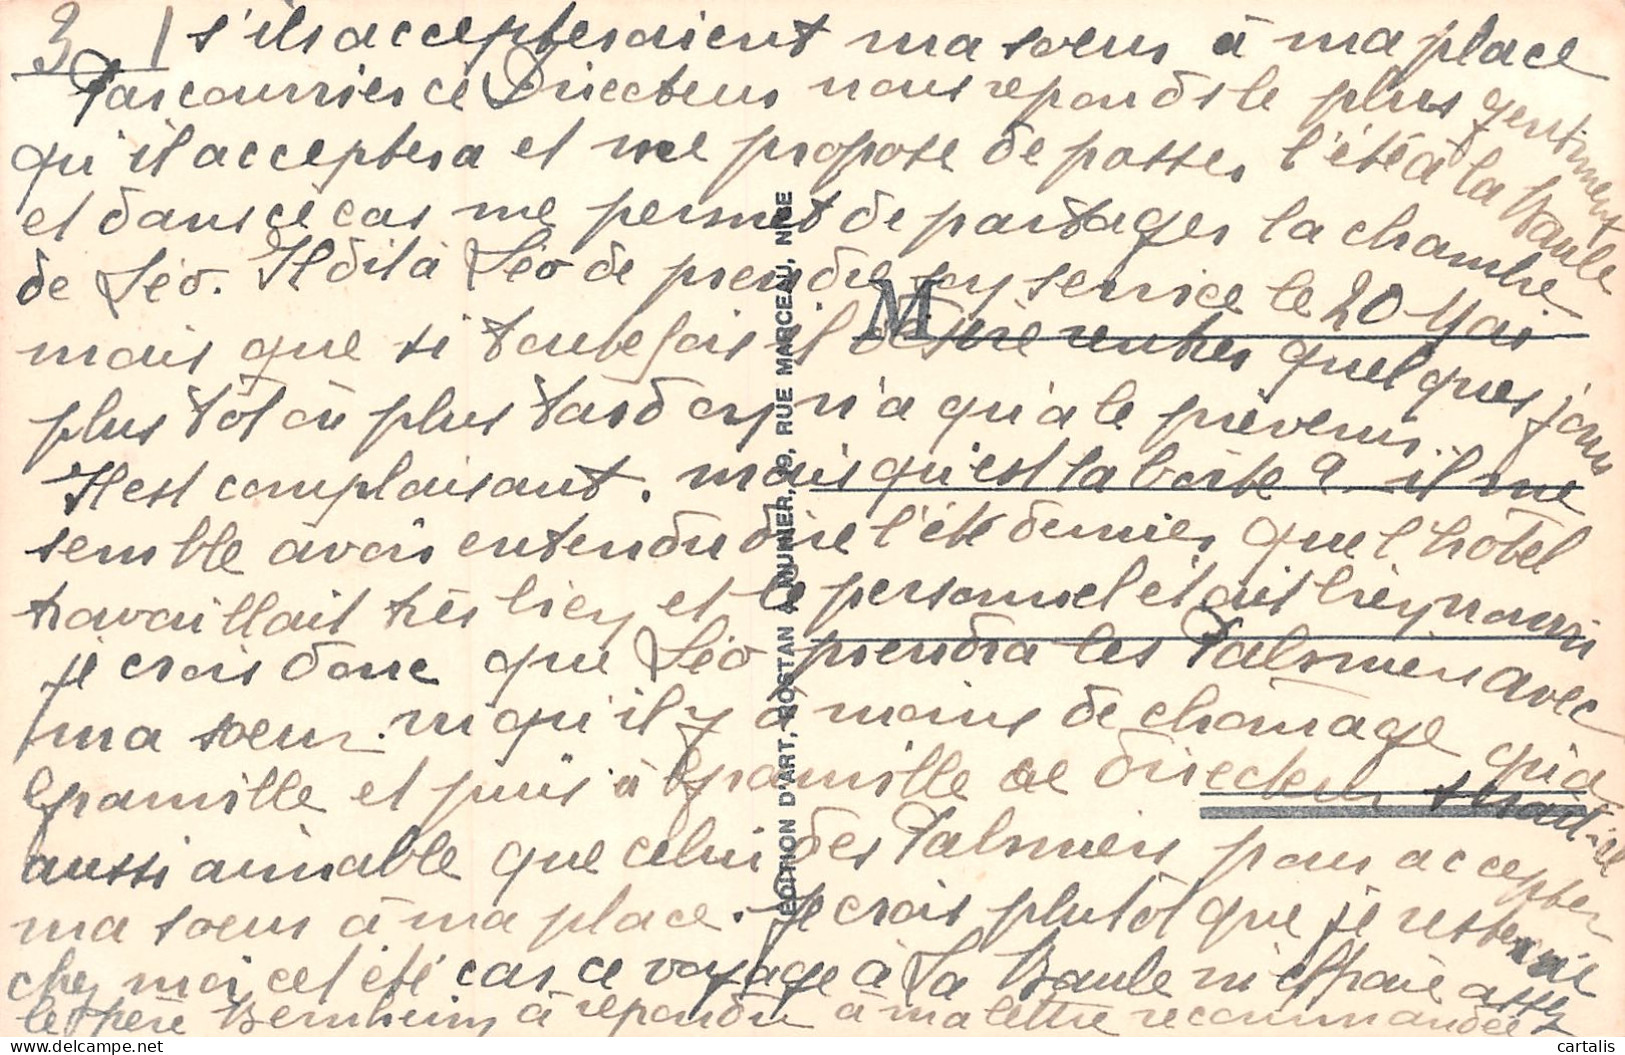 3 1 s'ils accepteraient ma soeur à ma place
Par courrier ce Directeur nous repond le plus gentiment
qu'il acceptera et me propose de passer l'été à la Baule
et dans ce cas me permet de partager la chambre
de Léo. Il dit à Léo de prendre son service le 20 Mai
mais que si toutefois il désire rentrer quelques jours
plus tôt où plus tard on n'a qu'a le prévenir.
Il est complaisant. mais qu'est la boîte? il me
semble avoir entendu dire l'été dernier que l'hôtel
travaillait très bien et le personnel etait bien nourri
je crois donc que Léo prendra les Palmiers avec
ma soeur. qu'il y a moins de chomage qu'a
Granville et puis à Granville ce directeur serait-il
aussi aimable que celui des Palmiers pour accepter
ma soeur à ma place. Je crois plutôt que je resterais
chez moi cet été car ce voyage à La Baule m'effraie assez
le père Bernheim à repondu à ma lettre recommandée
M
EDITION D'ART, ROSTAN & MUNIER, 19, RUE MARCEAU, NICE
cartalis